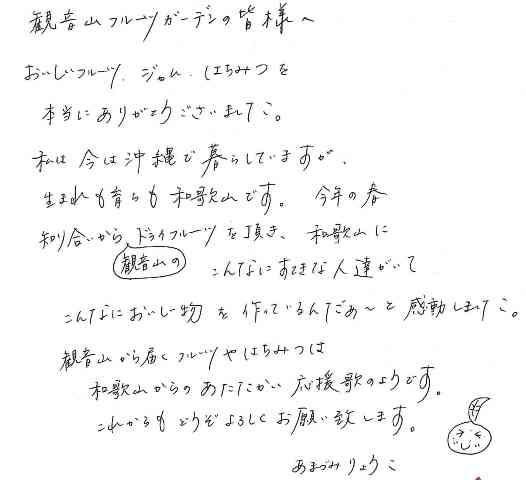 観音山フルーツガーデンの皆様へ
おいしいフルーツ、ジャム、はちみつを
本当にありがとうございました。
私は今は沖縄で暮らしていますが、
生まれも育ちも和歌山です。今年の春
知り合いから、観音山のドライフルーツを頂き、和歌山に
こんなにすてきな人達がいて
こんなにおいしい物を作っているんだぁ〜と感動しました。
観音山から届くフルーツやはちみつは
和歌山からのあたたかい応援歌のようです。
これからもどうぞよろしくお願い致します。
あまづみりょうこ